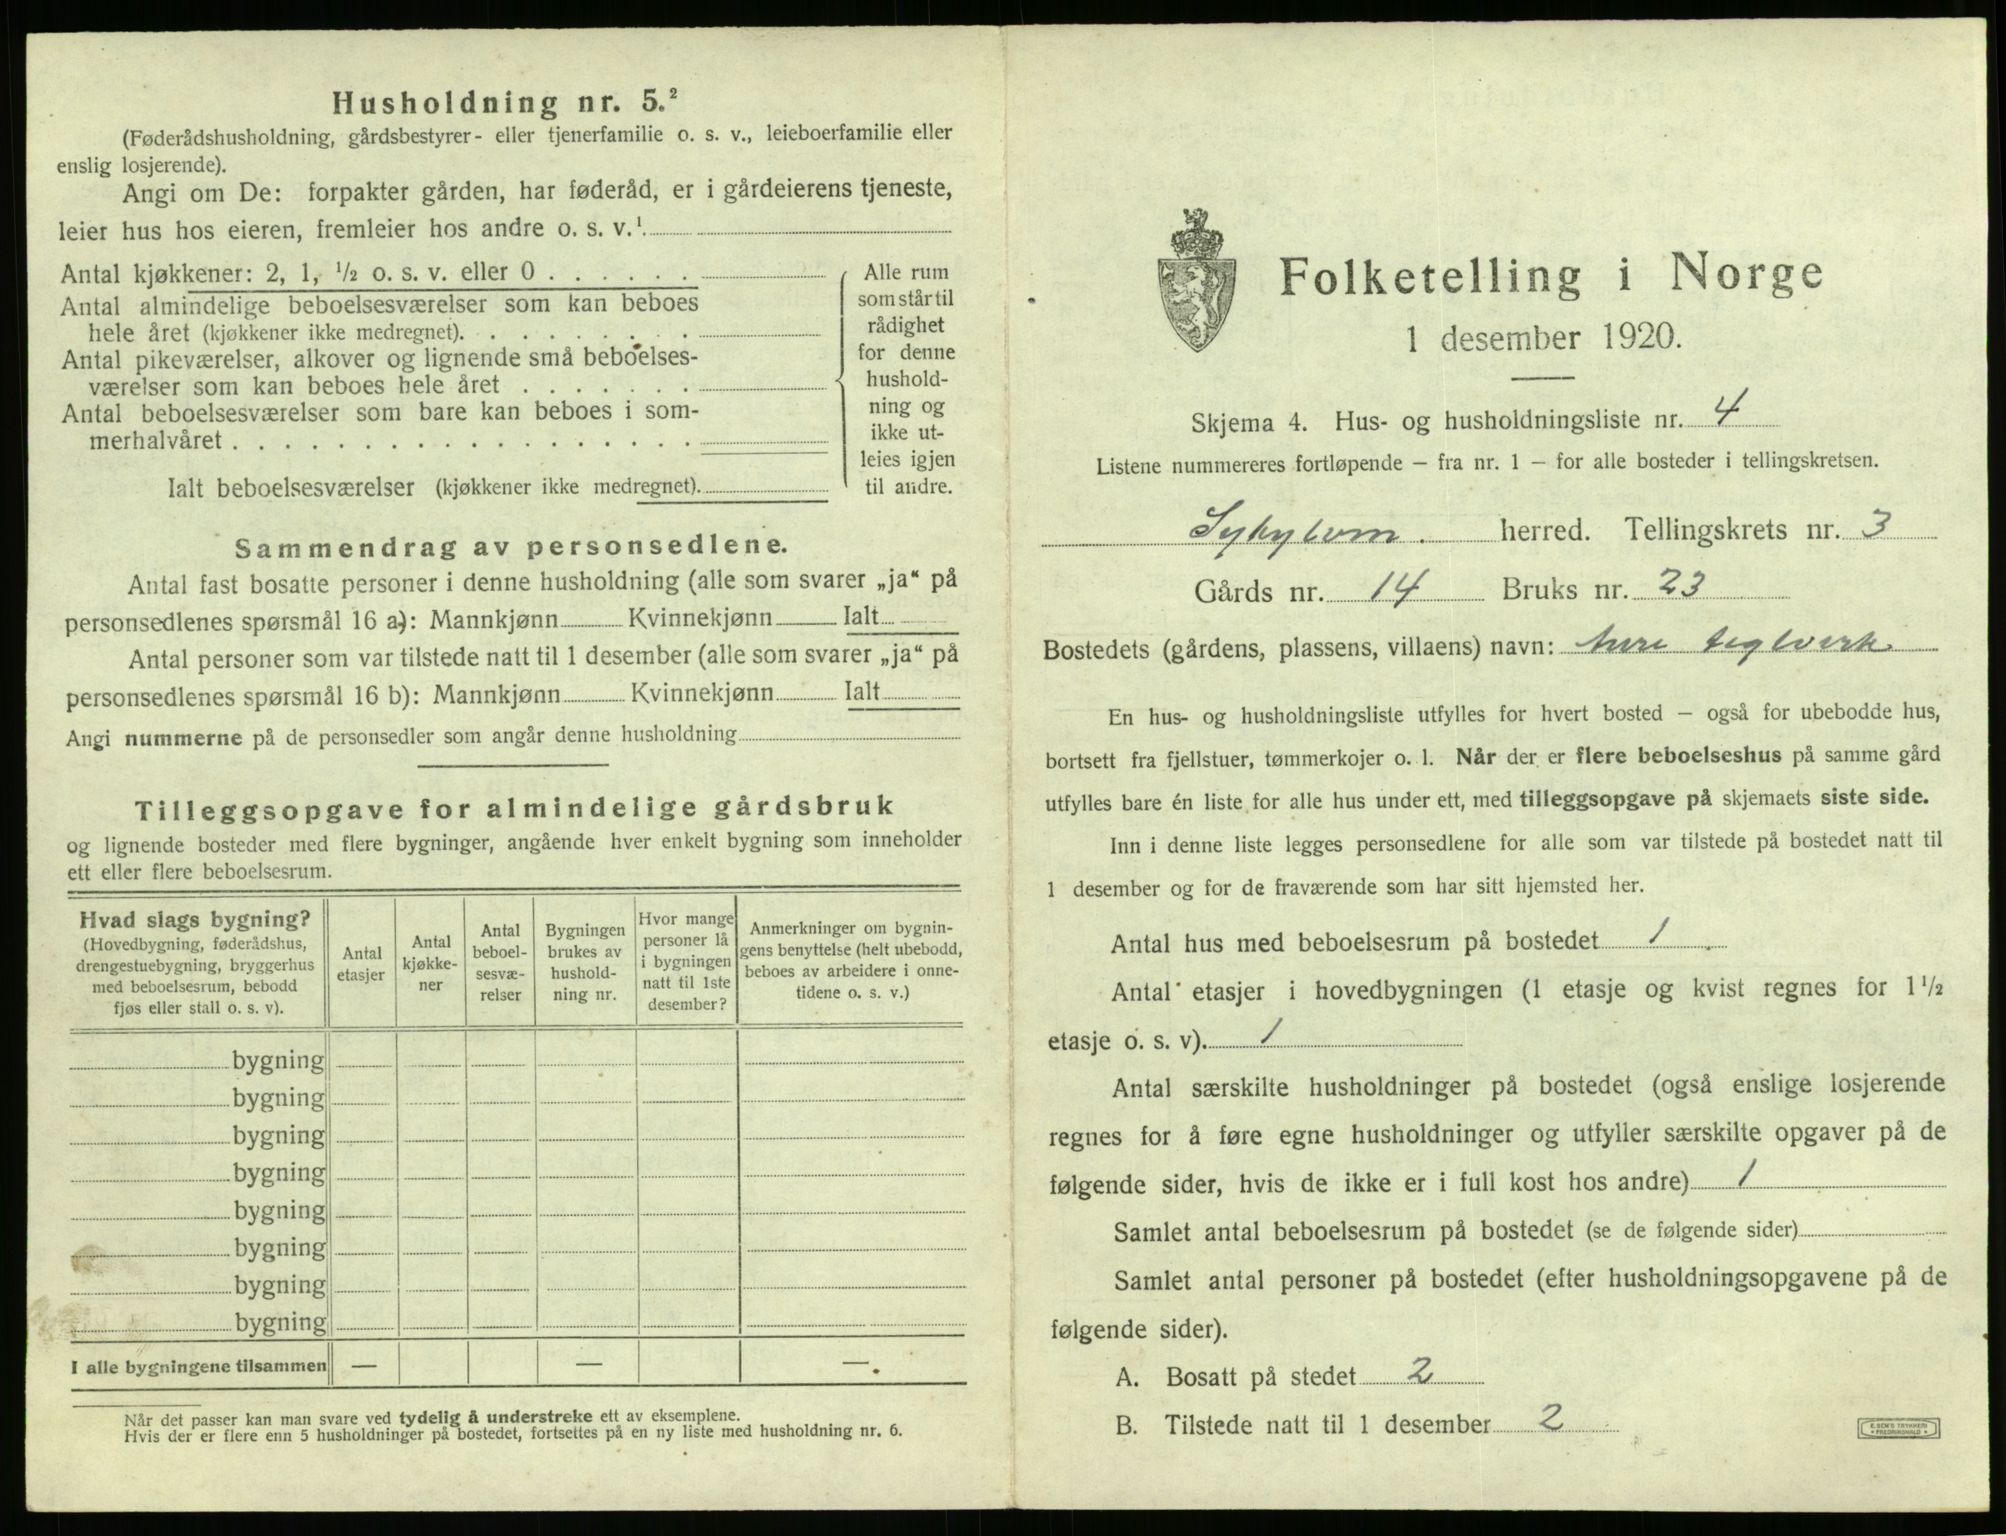 Husholdning nr. 5.²
(Føderådshusholdning, gårdsbestyrer- eller tjenerfamilie o. s. v., leieboerfamilie eller
enslig losjerende).
Angi om De: forpakter gården, har føderåd, er i gårdeierens tjeneste,
leier hus hos eieren, fremleier hos andre o. s. v.¹
Antal kjøkkener: 2, 1, ½ o. s. v. eller 0 . . . . . .
Antal almindelige beboelsesværelser som kan beboes
hele året (kjøkkener ikke medregnet). . . . . . . .
Antal pikeværelser, alkover og lignende små beboelses-
værelser som kan beboes hele året . . . . . . .
Antal beboelsesværelser som bare kan beboes i som-
merhalvåret . . . . . . . . . . . . . . . . . .
Ialt beboelsesværelser (kjøkkener ikke medregnet).
Alle rum
som står til
rådighet
for denne
hushold-
ning og
ikke ut-
leies igjen
til andre.
Sammendrag av personsedlene.
Antal fast bosatte personer i denne husholdning (alle som svarer „ja“ på
personsedlenes spørsmål 16 a): Mannkjønn Kvinnekjønn Ialt
Antal personer som var tilstede natt til 1 desember (alle som svarer „ja“ på
personsedlenes spørsmål 16 b): Mannkjønn Kvinnekjønn Ialt
Angi nummerne på de personsedler som angår denne husholdning
Tilleggsopgave for almindelige gårdsbruk
og lignende bosteder med flere bygninger, angående hver enkelt bygning som inneholder
ett eller flere beboelsesrum.
Hvad slags bygning?
(Hovedbygning, føderådshus,
drengestuebygning, bryggerhus
med beboelsesrum, bebodd
fjøs eller stall o. s. v).
Antal
etasjer
Antal
kjøkke-
ner
Antal
beboel-
sesvæ-
relser
Bygningen
brukes av
hushold-
ning nr.
Hvor mange
personer lå
i bygningen
natt til 1ste
desember?
Anmerkninger om bygnin-
gens benyttelse (helt ubebodd,
beboes av arbeidere i onne-
tidene o. s. v.)
bygning
bygning
bygning
bygning
bygning
bygning
bygning
bygning
I alle bygningene tilsammen — — —
Når det passer kan man svare ved tydelig å understreke ett av eksemplene.
Hvis der er flere enn 5 husholdninger på bostedet, fortsettes på en ny liste med husholdning nr. 6.
Folketelling i Norge
1 desember 1920.
Skjema 4. Hus- og husholdningsliste nr. 4
Listene nummereres fortløpende — fra nr. 1 — for alle bosteder i tellingskretsen.
Sykylven. herred. Tellingskrets nr. 3
Gårds nr. 14 Bruks nr. 23
Bostedets (gårdens, plassens, villaens) navn: Aure teglverk
En hus- og husholdningsliste utfylles for hvert bosted — også for ubebodde hus,
bortsett fra fjellstuer, tømmerkojer o. l. Når der er flere beboelseshus på samme gård
utfylles bare én liste for alle hus under ett, med tilleggsopgave på skjemaets siste side.
Inn i denne liste legges personsedlene for alle som var tilstede på bostedet natt til
1 desember og for de fraværende som har sitt hjemsted her.
Antal hus med beboelsesrum på bostedet 1
Antal etasjer i hovedbygningen (1 etasje og kvist regnes for 1½
etasje o. s. v). 1
Antal særskilte husholdninger på bostedet (også enslige losjerende
regnes for å føre egne husholdninger og utfyller særskilte opgaver på de
følgende sider, hvis de ikke er i full kost hos andre) 1
Samlet antal beboelsesrum på bostedet (se de følgende sider)
Samlet antal personer på bostedet (efter husholdningsopgavene på de
følgende sider).
A. Bosatt på stedet 2
B. Tilstede natt til 1 desember 2
E. SEM'S TRYKKERI
FREDRIKSHALD